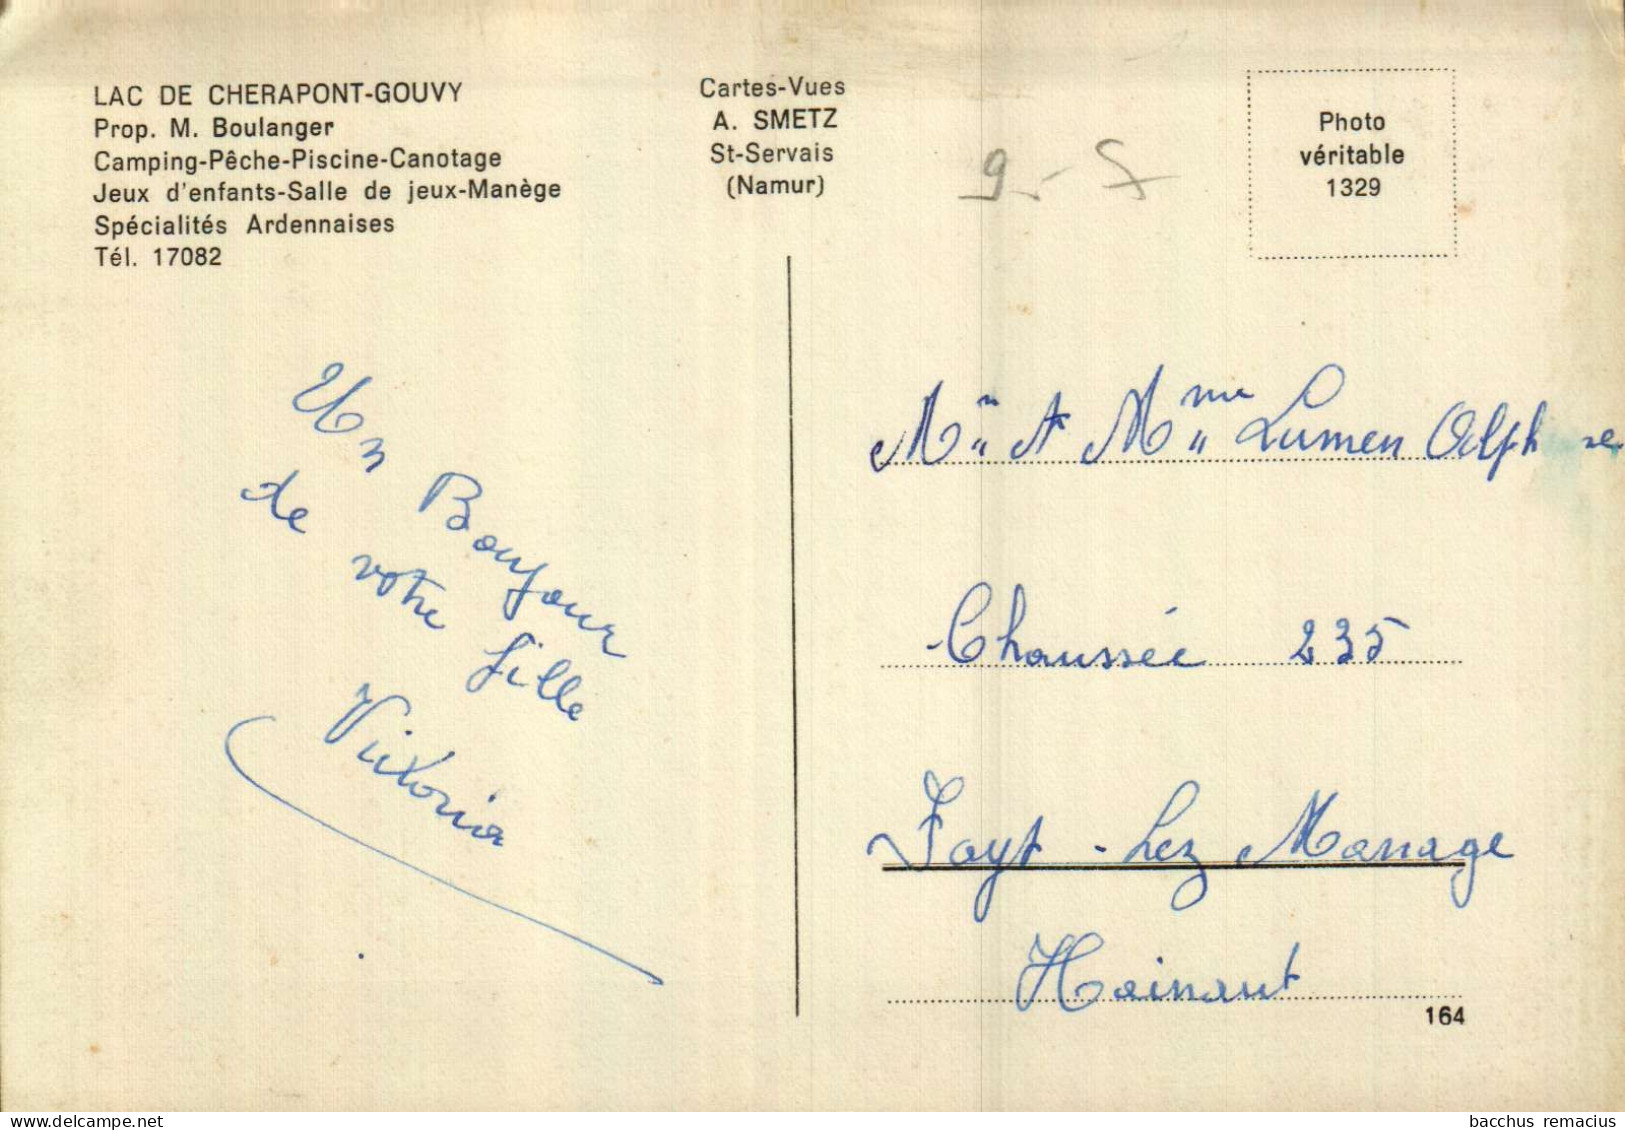 LAC DE CHERAPONT-GOUVY
Prop. M. Boulanger
Camping-Pêche-Piscine-Canotage
Jeux d'enfants-Salle de jeux-Manège
Spécialités Ardennaises
Tél. 17082
Cartes-Vues
A. SMETZ
St-Servais
(Namur)
Photo
véritable
1329
Un Bonjour
de votre fille
Victoria
Mme Lumen
Chaussée 235
Fayt-Lez Manage
Hainaut
164
bacchus remacius